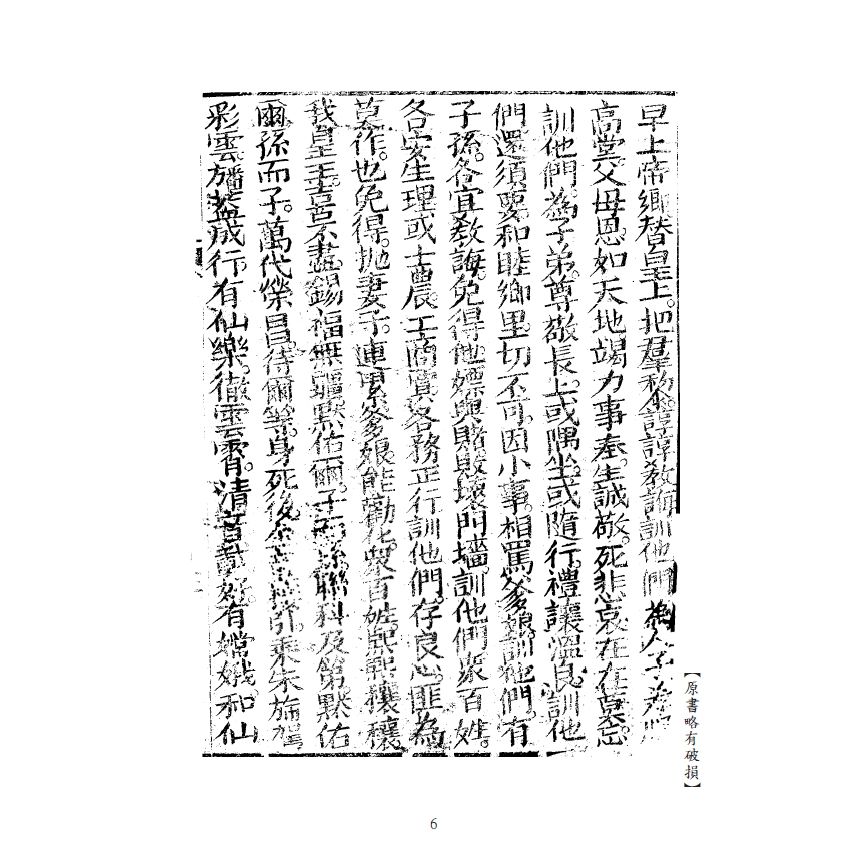 早上帝鄉替皇上。把羣黎諄諄教誨訓他們為人子養
高堂。父母恩。如天地竭力事奉。生誠敬。死悲哀在在莫忘
訓他們。為子弟。尊敬長上。或隅坐。或隨行。禮讓溫良。訓他
們還須要。和睦鄉里。切不可。因小事。相罵爹娘。訓他們。有
子孫。各宜教誨。免得他嫖與賭敗壞門墻。訓他們眾百姓。
各安生理或士農。工商賈各務正行訓他們。存良心。匪為
莫作。也免得。拋妻子。連累爹娘。能勸化。眾百姓。熙熙攘攘
我皇王。喜不盡。錫福無疆默佑爾。子而孫。聯科及第默佑
爾。孫而子。萬代榮昌。待爾等。身死後。引。乘朱
彩雲。旛蓋成行。有仙樂。徹雲霄。清音好。有嫦娥。和仙
【原書略有破損】
6